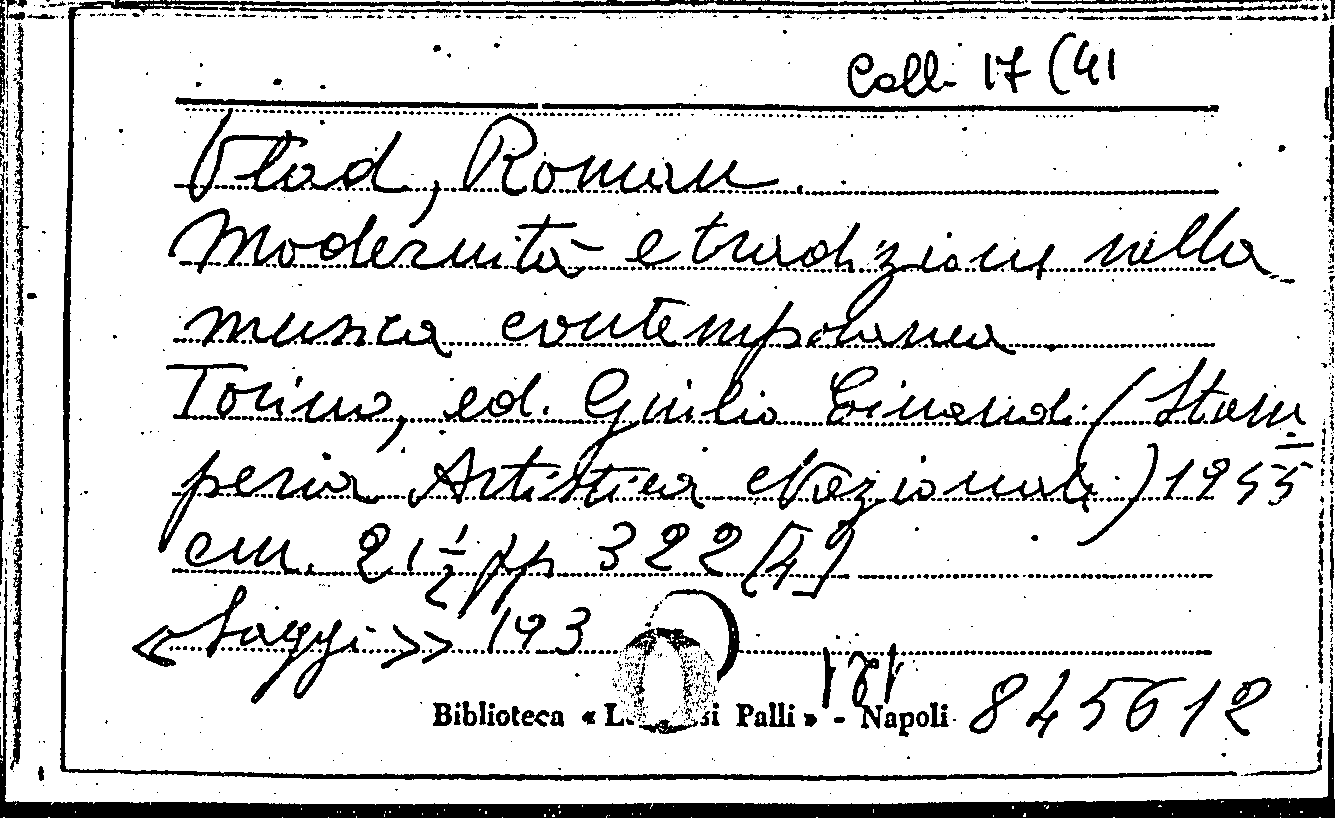 Coll. 17 (41
Vlad, Roman.
Modernità e tradizione nella
musica contemporanea.
Torino, ed. Giulio Einaudi (Stam
peria Artistica Nazionale) 1955
cm. 21 1/2 pp 322 [4]
«Saggi» 193
Biblioteca « si Palli » - Napoli 845612